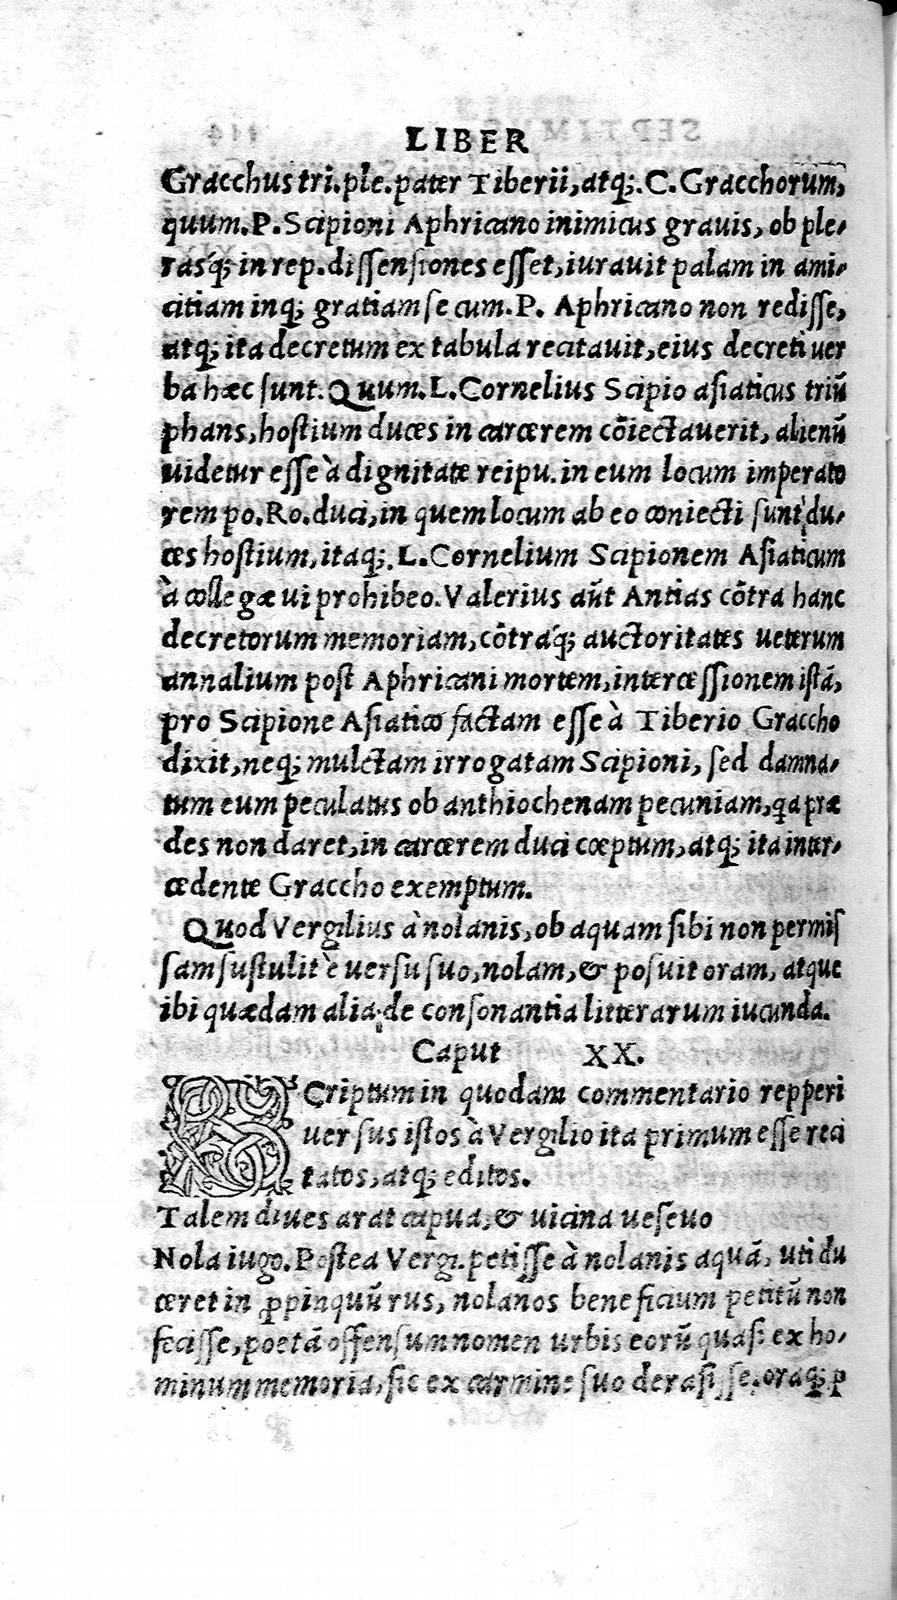 LIBER
Gracchus tri. ple. pater Tiberii, atq;. C. Gracchorum,
quum. P. Scipioni Aphricano inimicus grauis, ob ple-
rasq́; in rep. dissensiones esset, iurauit palam in ami-
citiam inq; gratiam se cum. P. Aphricano non redisse,
atq; ita decretum ex tabula recitauit, eius decreti uer
ba hæc sunt. Quum. L. Cornelius Scipio asiaticus triū
phans, hostium duces in carcerem cōiectauerit, alienū
uidetur esse à dignitate reipu. in eum locum imperato
rem po. Ro. duci, in quem locum ab eo coniecti sunt du-
ces hostium, itaq;. L. Cornelium Scipionem Asiaticum
à collegæ ui prohibeo. Valerius aūt Antias cōtra hanc
decretorum memoriam, cōtraq́; auctoritates ueterum
annalium post Aphricani mortem, intercessionem istā,
pro Scipione Asiatico factam esse à Tiberio Graccho
dixit, neq; mulctam irrogatam Scipioni, sed damna-
tum eum peculatus ob anthiochenam pecuniam, q̨a præ
des non daret, in carcerem duci cœptum, atq; ita inter-
cedente Graccho exemptum.
Quod Vergilius à nolanis, ob aquam sibi non permis
sam sustulit è uersu suo, nolam, & posuit oram, atque
ibi quædam alia de consonantia litterarum iucunda.
Caput XX.
SCriptum in quodam commentario repperi
uersus istos à Vergilio ita primum esse reci
tatos, atq; editos.
Talem diues arat capua, & uicina ueseuo
Nola iugo. Postea Vergi. petisse à nolanis aquā, uti du
ceret in ꝓpinquū rus, nolanos beneficium petitū non
fecisse, poetā offensum nomen urbis eorū quasi ex ho-
minum memoria, sic ex carmine suo derasisse, oraq; ꝑ